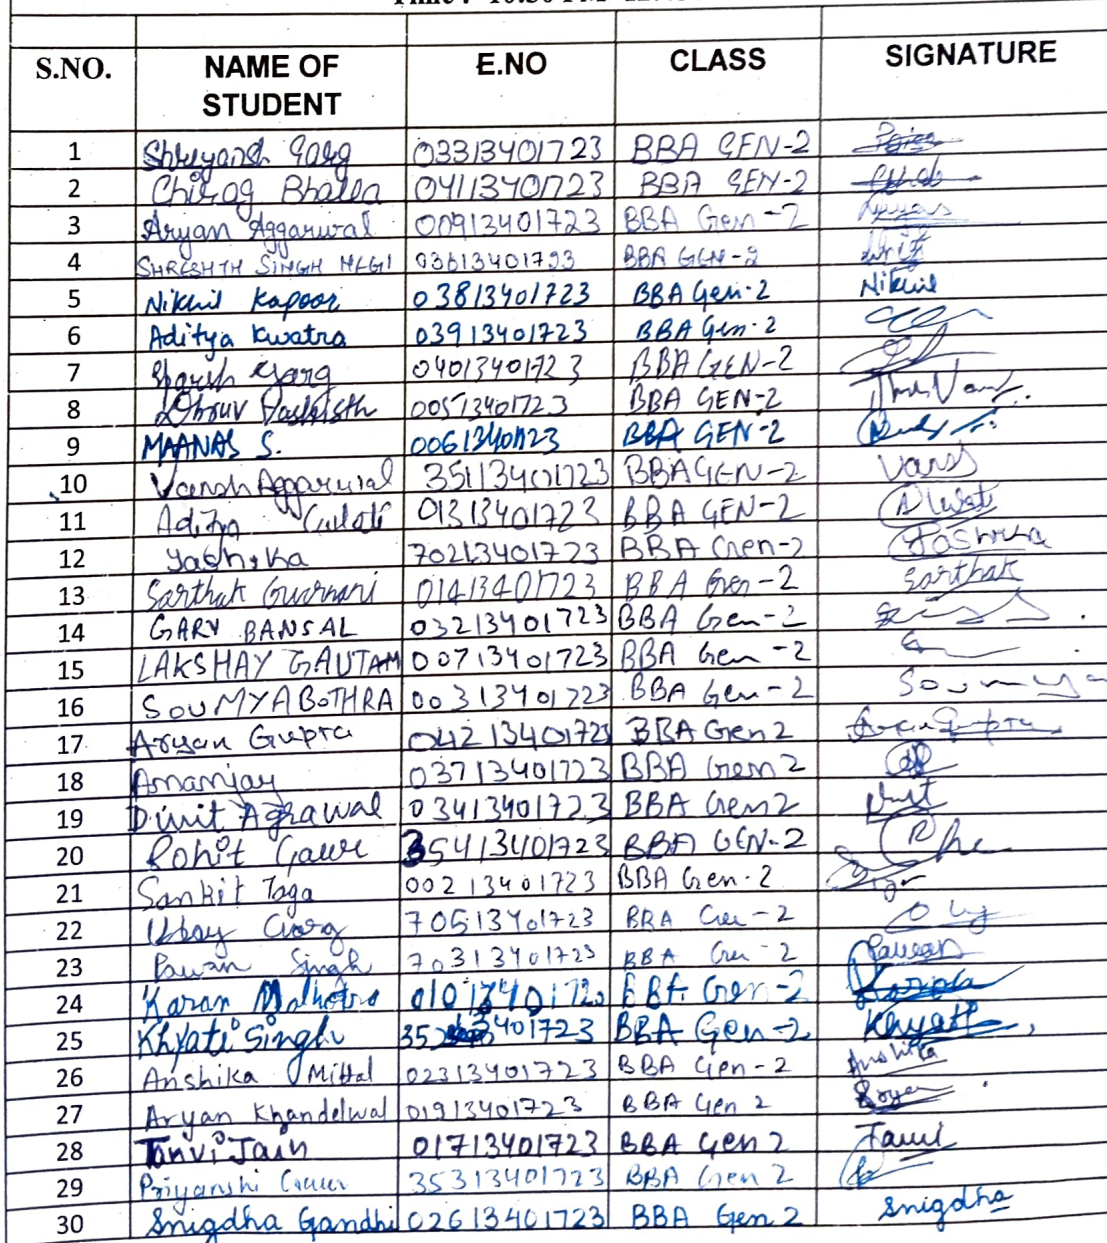 S.NO. NAME OF STUDENT E.NO CLASS SIGNATURE
1 Shreyansh Garg 03313401723 BBA GEN-2
2 Chirag Bhalla 04113401723 BBA GEN-2
3 Aryan Aggarwal 00913401723 BBA Gen-2
4 SHRESHTH SINGH NEGI 03613401723 BBA GEN-2
5 Nikhil Kapoor 03813401723 BBA Gen-2 Nikhil
6 Aditya Kwatra 03913401723 BBA Gen-2
7 Sparsh Garg 04013401723 BBA GEN-2
8 Dhruv Vashisth 00513401723 BBA GEN-2
9 MAANAS S. 00613401723 BBA GEN-2
10 Vansh Aggarwal 35113401723 BBA GEN-2 Vansh
11 Aditya Gulati 01313401723 BBA GEN-2
12 Yashika 70213401723 BBA Gen-2 Yashika
13 Sarthak Gurnani 01413401723 BBA Gen-2 Sarthak
14 GARV BANSAL 03213401723 BBA Gen-2
15 LAKSHAY GAUTAM 00713401723 BBA Gen-2
16 SOUMYA BOTHRA 00313401723 BBA Gen-2 Soumya
17 Aryan Gupta 04213401723 BBA Gen 2 Aryan Gupta
18 Ananjay 03713401723 BBA Gen 2
19 Divit Agrawal 03413401723 BBA Gen 2
20 Rohit Gaur 35413401723 BBA GEN-2
21 Sankit Taga 00213401723 BBA Gen-2
22 Ubay Garg 70513401723 BBA Gen-2
23 Pawan Singh 70313401723 BBA Gen-2 Pawan
24 Karan Malhotra 01013401723 BBA Gen-2
25 Khyati Singh BBA Gen-2 Khyati
26 Anshika Mittal 02313401723 BBA Gen-2 Anshika
27 Aryan Khandelwal 01913401723 BBA Gen 2
28 Tanvi Jain 01713401723 BBA Gen 2 Tanvi
29 Priyanshi Gaur 35313401723 BBA Gen 2
30 Snigdha Gandhi 02613401723 BBA Gen 2 Snigdha